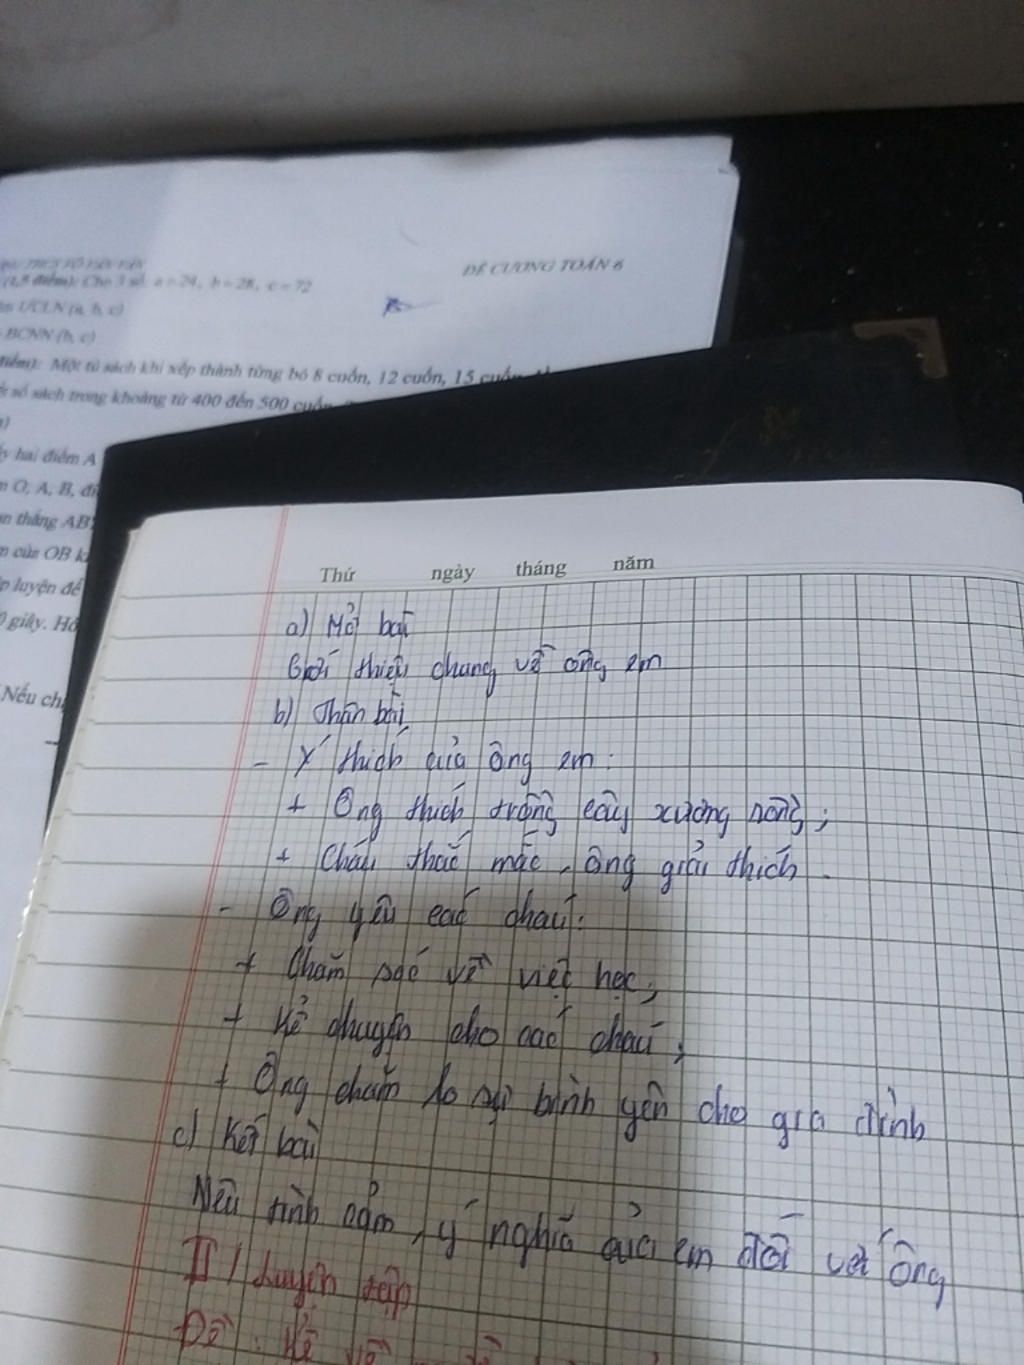 ĐỀ CƯƠNG TOÁN 6
điểm): Cho 3 số a = 24, b = 28, c = 72
ƯCLN (a, b, c)
BCNN (b, c)
điểm): Một tủ sách khi xếp thành từng bó 8 cuốn, 12 cuốn, 15 cuốn
số sách trong khoảng từ 400 đến 500 cuốn
hai điểm A
O, A, B,
thẳng AB
của OB
luyện để
giây.
Nếu
Thứ ngày tháng năm
a) Mở bài
Giới thiệu chung về ông em
b) Thân bài
- Ý thích của ông em:
+ Ông thích trồng cây xương rồng;
+ Cháu thắc mắc, ông giải thích.
- Ông yêu các cháu:
+ Chăm sóc về việc học;
+ Kể chuyện cho các cháu;
+ Ông chăm lo sự bình yên cho gia đình
c) Kết bài
Nêu tình cảm, ý nghĩ của em đối với ông
II/ Luyện tập
Đề: Kể về